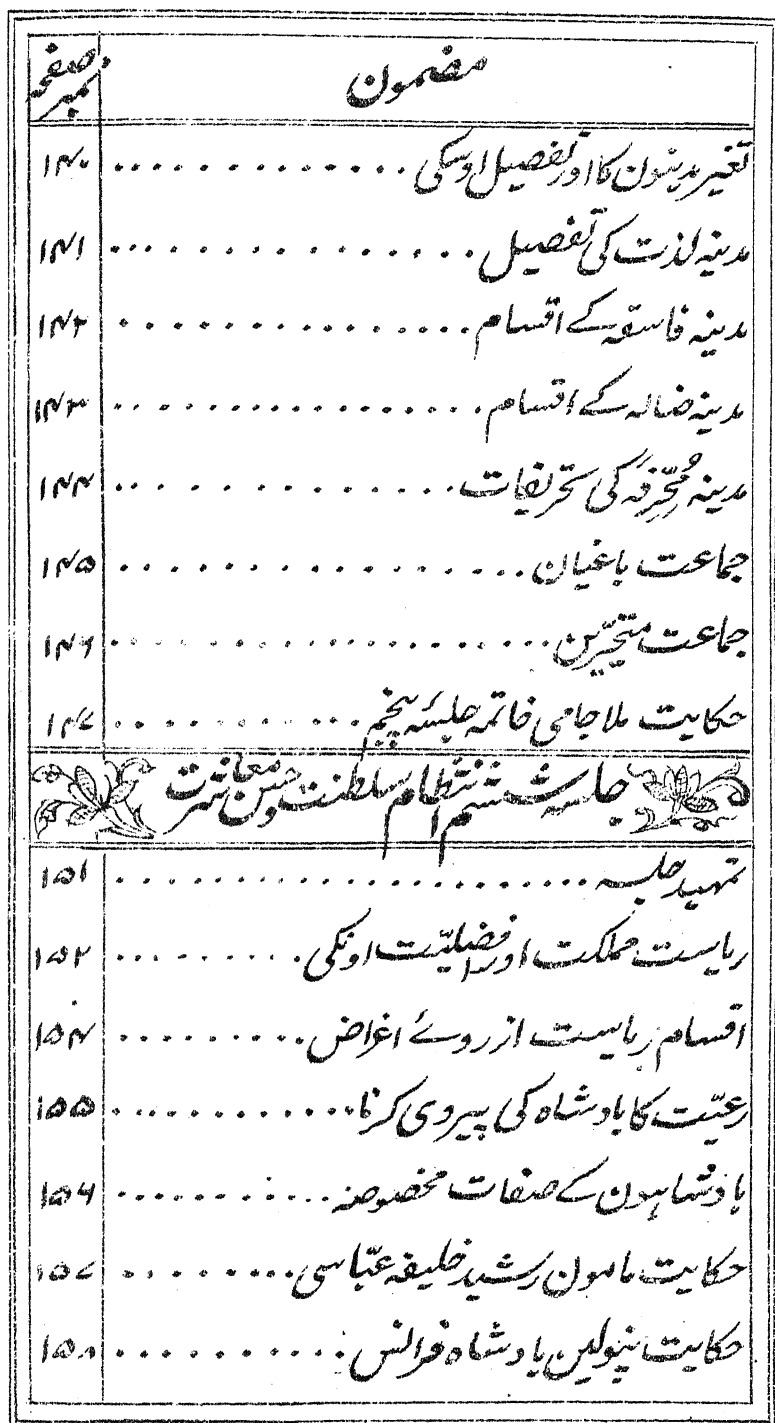 مضمون نمبر صفحہ
تغیر مدینون کا اور تفصیل اوسکی .............. ۱۴۰
مدینہ لذت کی تفصیل .............. ۱۴۱
مدینہ فاسقہ کے اقسام .............. ۱۴۲
مدینہ ضالہ کے اقسام .............. ۱۴۳
مدینہ مُحَرِّفَہ کی تحریفات .............. ۱۴۴
جماعت باغیان .............. ۱۴۵
جماعت متحیّرین .............. ۱۴۶
حکایت ملا جامی خاتمہ جلسۂ پنجم .............. ۱۴۷
جلسہ ششم انتظام سلطنت و حسن معاشرت
تمہید جلسہ .............. ۱۵۱
ریاست مملکت اور افضلیّت اونکی .............. ۱۵۲
اقسام ریاست از روے اغراض .............. ۱۵۴
رعیّت کا بادشاہ کی پیروی کرنا .............. ۱۵۵
بادشاہون کے صفات مخصوصہ .............. ۱۵۶
حکایت مامون رشید خلیفہ عبّاسی .............. ۱۵۷
حکایت نپولین بادشاہ فرانس .............. ۱۵۸